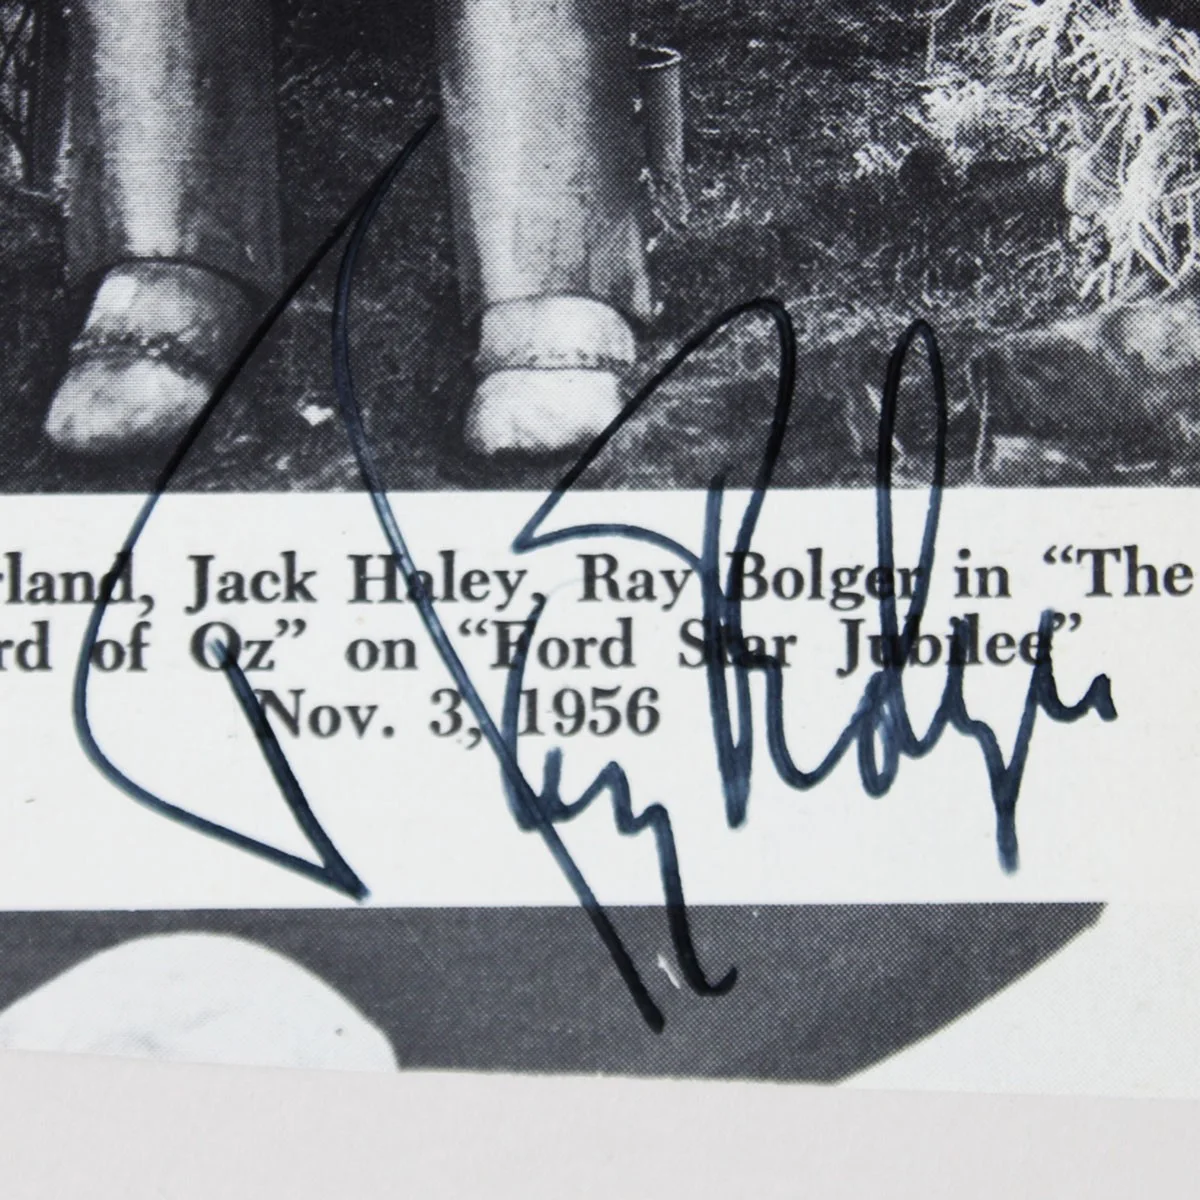 rland, Jack Haley, Ray Bolger in “The
rd of Oz” on “Ford Star Jubilee”
Nov. 3, 1956
Ray Bolger